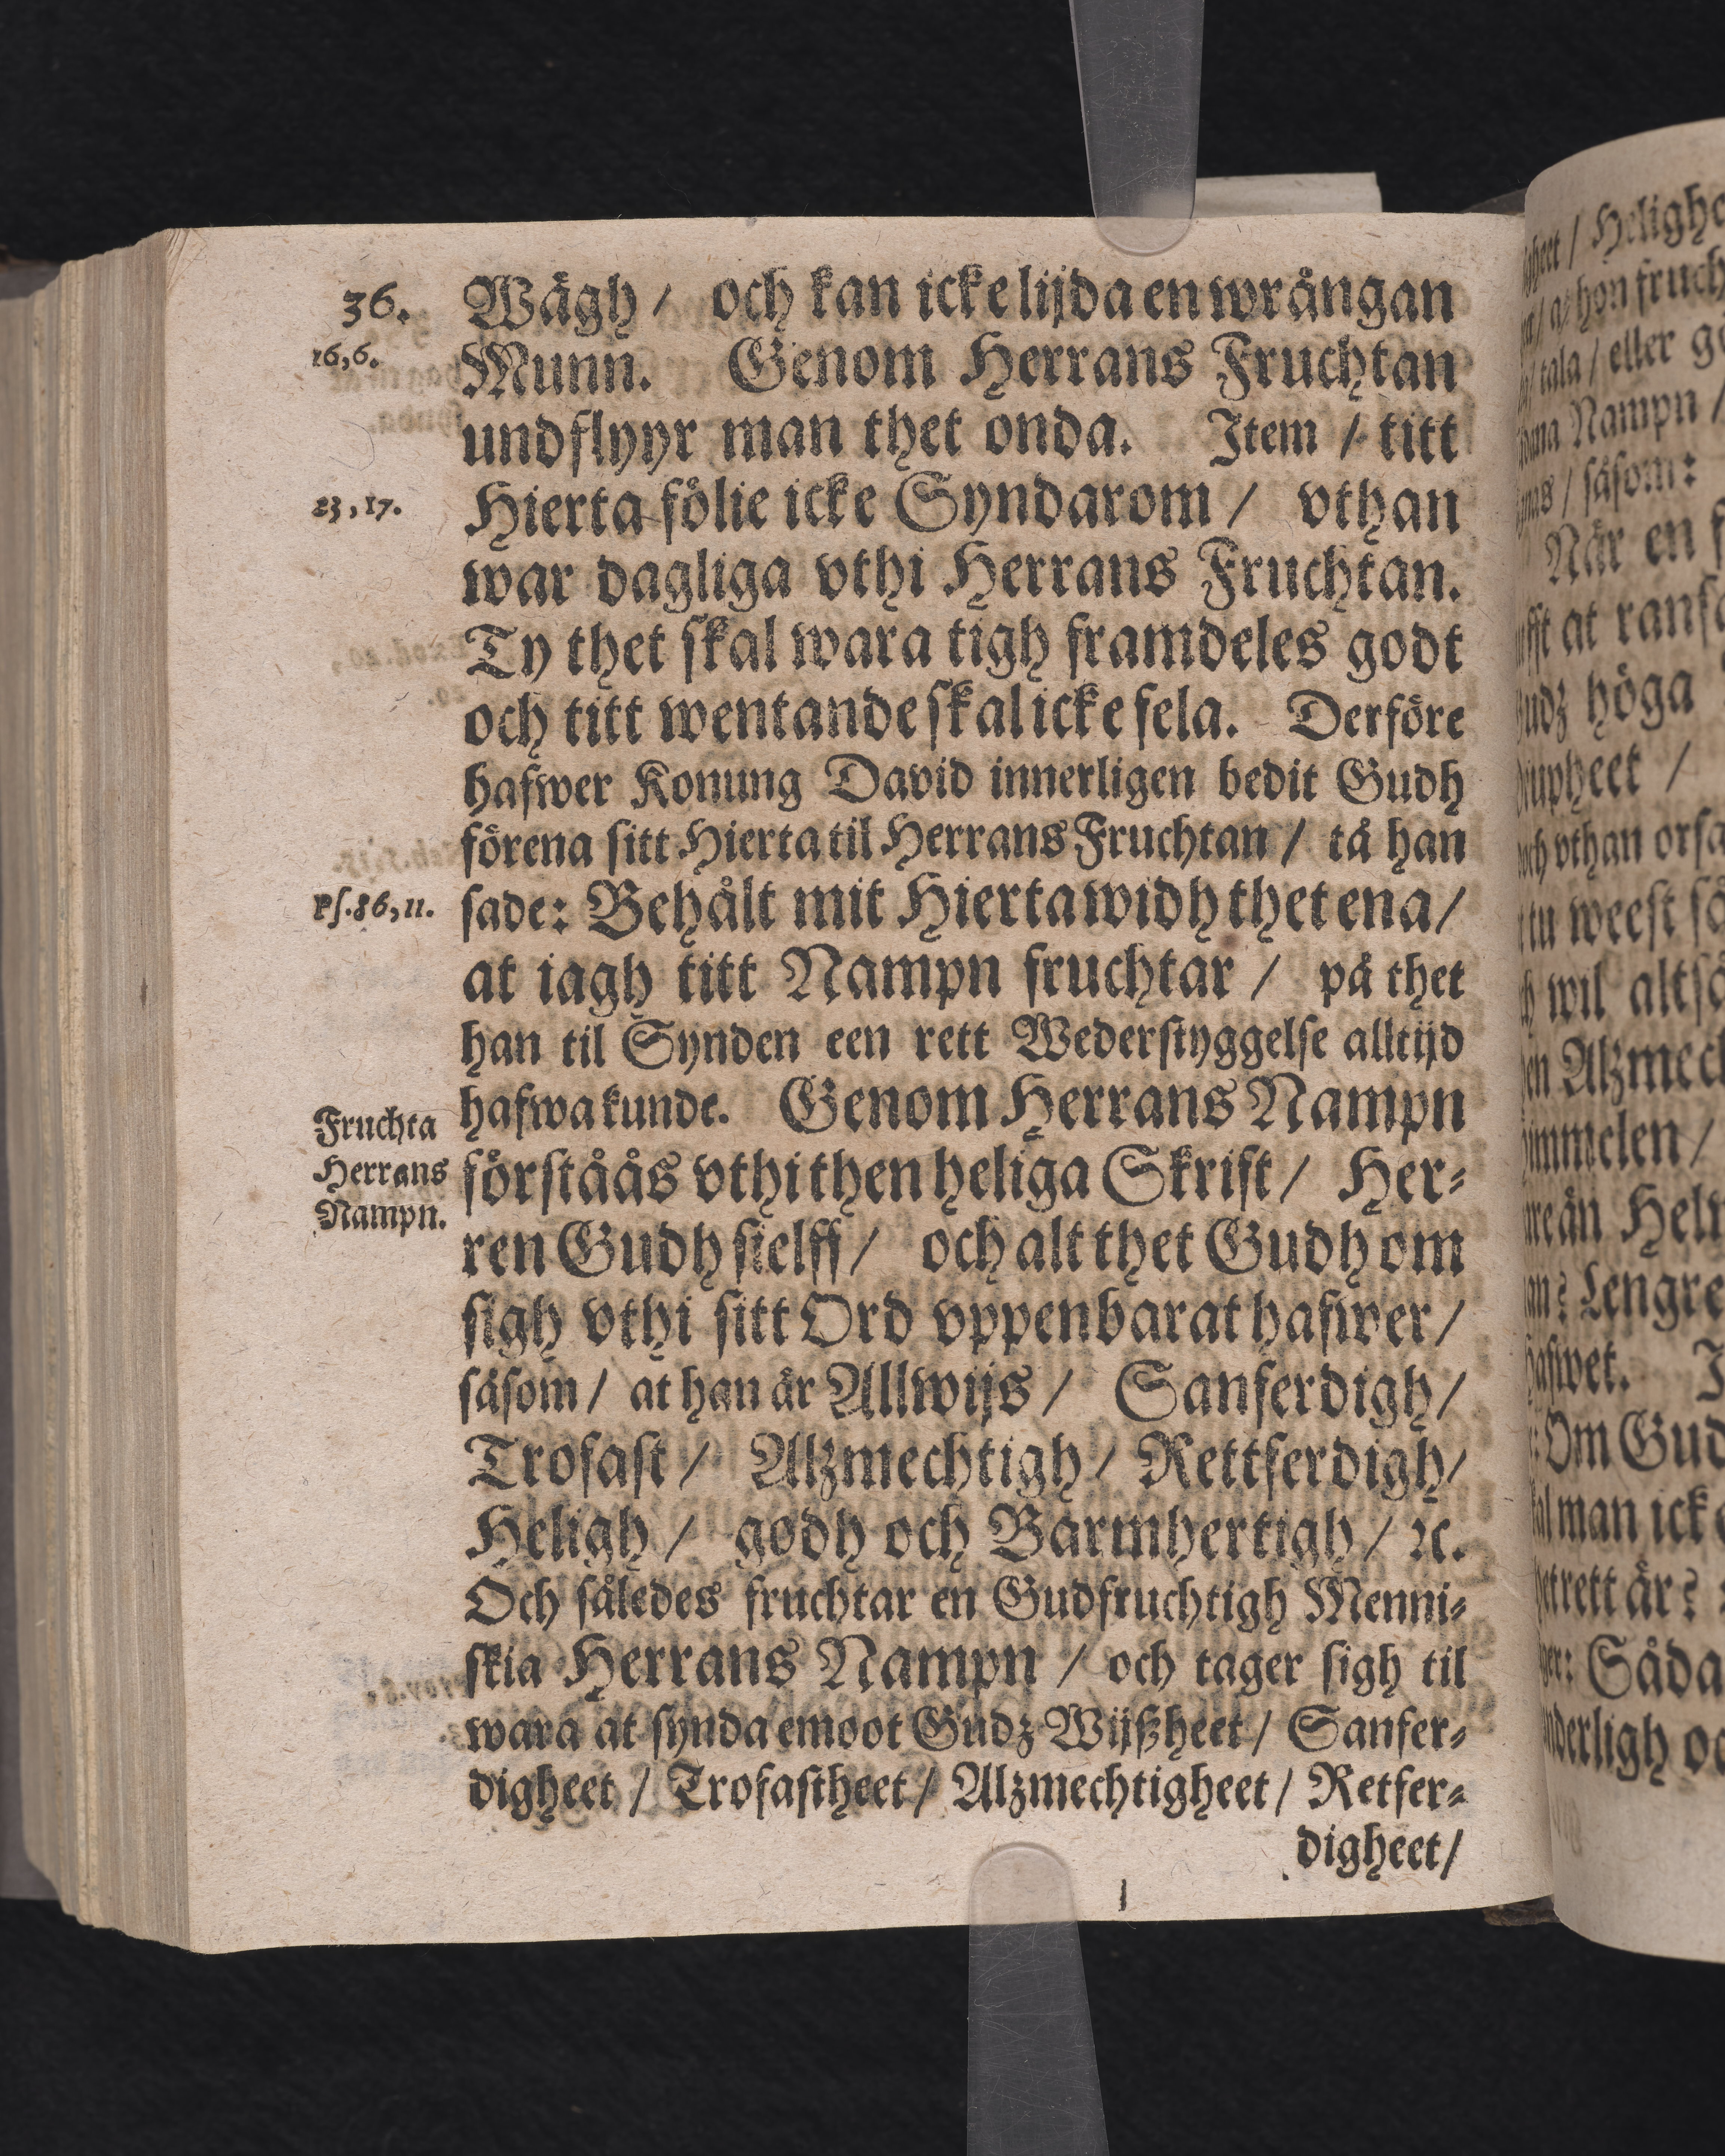 36.
Wägh / och kan icke lijda en wrångan
16,6.
Munn. Genom Herrans Fruchtan
undflyyr man thet onda. Item / titt
23,17.
Hierta fölie icke Syndarom / vthan
war dagliga vthi Herrans Fruchtan.
Ty thet skal wara tigh framdeles godt
och titt wentande skal icke fela. Derföre
hafwer Konung David innerligen bedit Gudh
förena sitt Hierta til Herrans Fruchtan / tå han
Ps.86,11.
sade: Behålt mit Hierta widh thet ena /
at iagh titt Nampn fruchtar / på thet
han til Synden een rett Wederstyggelse alltijd
hafwa kunde. Genom Herrans Nampn
Fruchta
Herrans
Nampn.
förståås vthi then heliga Skrift / Her=
ren Gudh sielff / och alt thet Gudh om
sigh vthi sitt Ord vppenbarat hafwer /
såsom / at han är Allwijs / Sanferdigh /
Trofast / Alzmechtigh / Rettferdigh /
Heligh / godh och Barmhertigh / ꝛc.
Och således fruchtar en Gudfruchtigh Menni=
skia Herrans Nampn / och tager sigh til
wara at synda emoot Gudz Wijßheet / Sanfer=
digheet / Trofastheet / Alzmechtigheet / Retfer=
digheet /
Helighe
hon fruch
tala / eller
Nampn /
såsom:
När en
at ransa
höga
wil altså
Alzmech
Lengre
Om Gud
man icke
rett är?
Såda